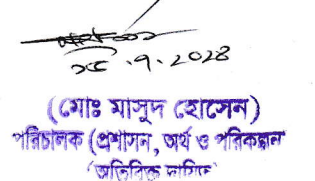 ২৫.৭.২০২৪
(মোঃ মাসুদ হোসেন)
পরিচালক (প্রশাসন, অর্থ ও পরিকল্পনা
(অতিরিক্ত দায়িত্ব